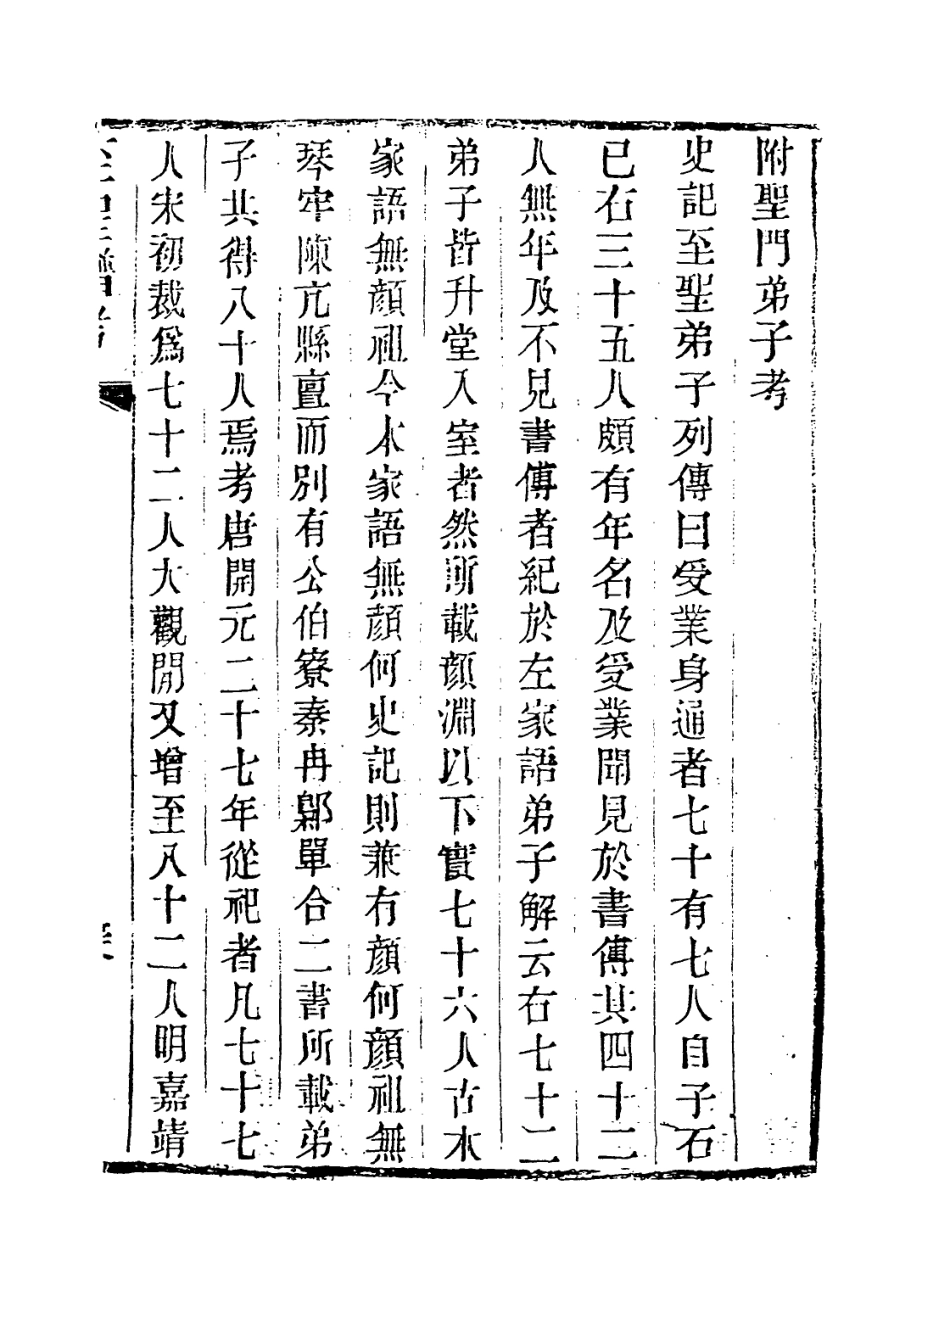 附聖門弟子考
史記至聖弟子列傳曰受業身通者七十有七人自子石
已右三十五人頗有年名及受業聞見於書傳其四十二
人無年及不見書傳者紀於左家語弟子解云右七十二
弟子皆升堂入室者然所載顏淵以下實七十六人古本
家語無顏祖今本家語無顏何史記則兼有顏何顏祖無
琴牢陳亢縣亶而別有公伯寮秦冉鄡單合二書所載弟
子共得八十人焉考唐開元二十七年從祀者凡七十七
人宋初裁爲七十二人大觀閒又增至八十二人明嘉靖